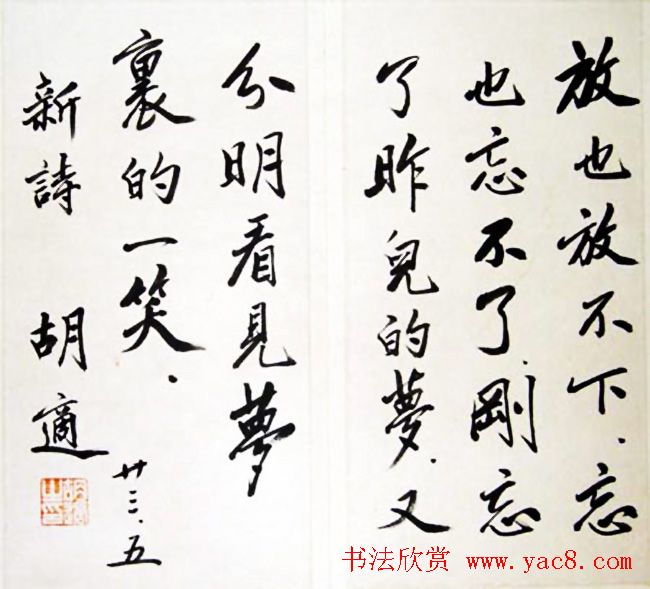 放也放不下、忘
也忘不了、剛忘
了昨兒的夢、又
分明看見夢
裏的一笑、
新詩 胡適
廿三、五
书法欣赏 www.yac8.com